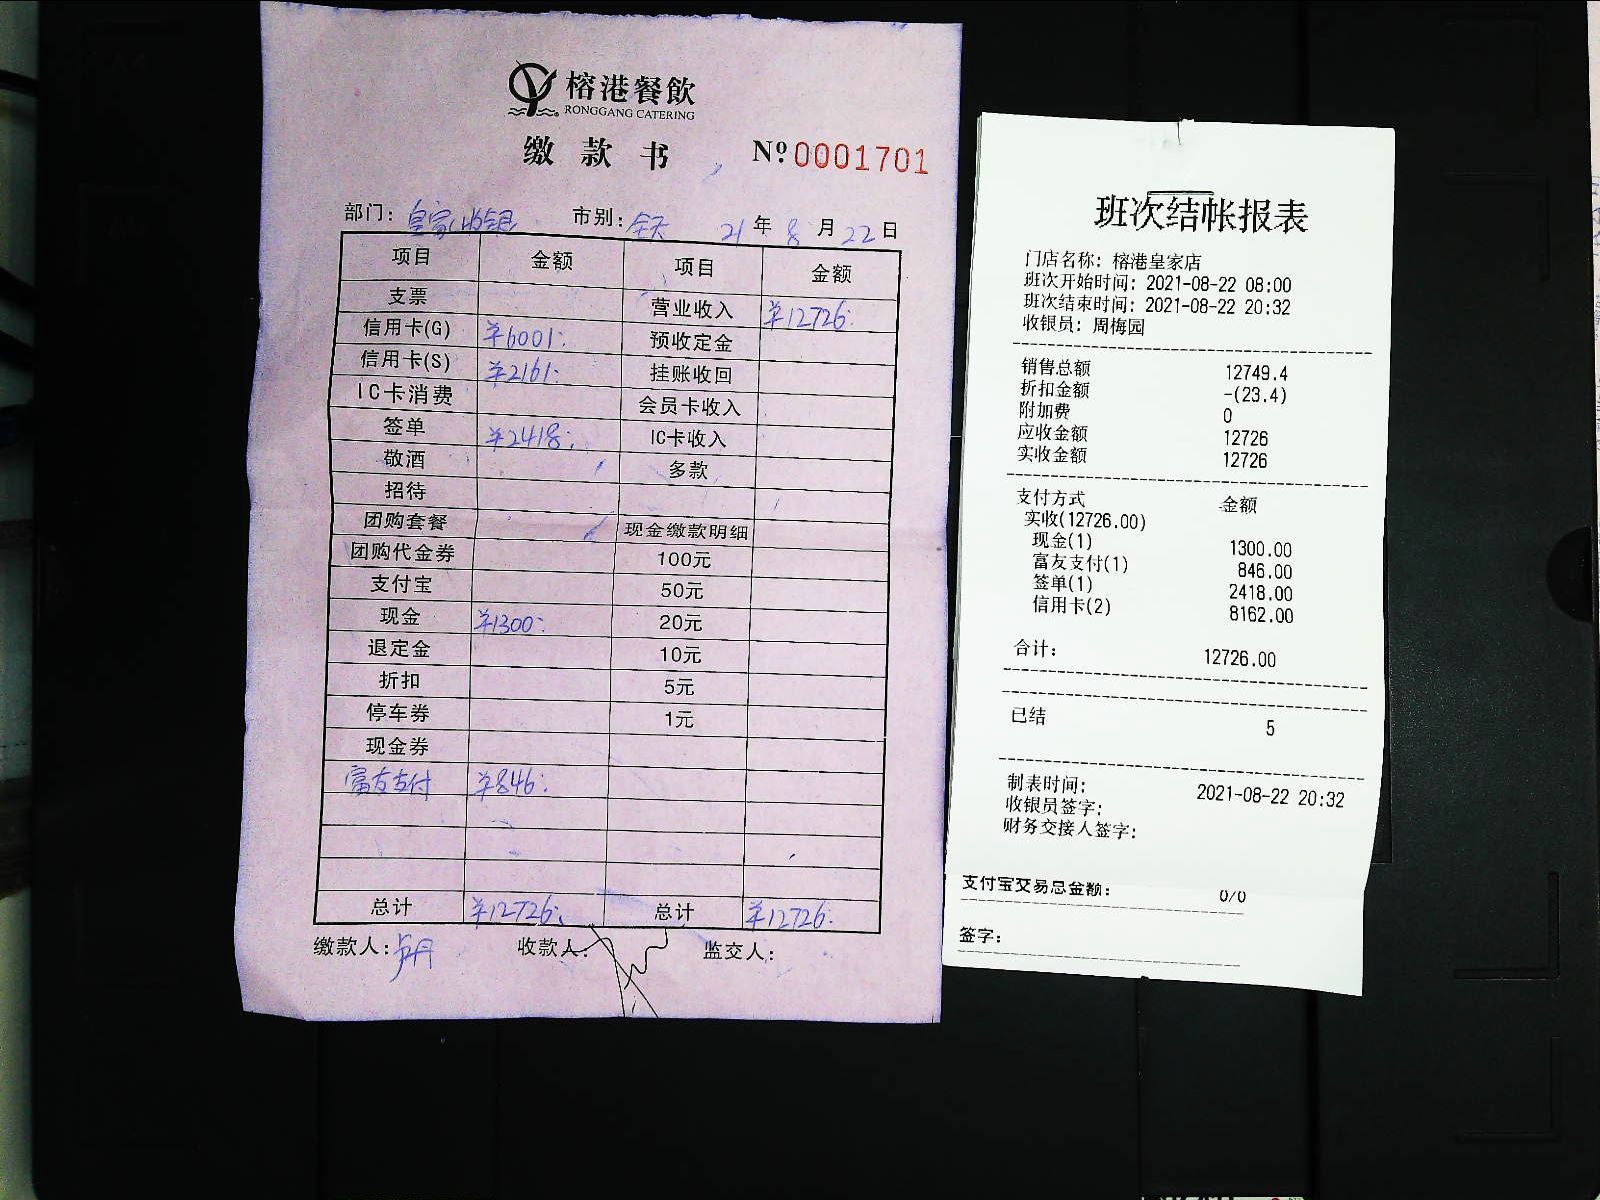 榕港餐飲
RONGGANG CATERING
缴款书
Nº 0001701
部门：皇家收银 市别：全天 21年8月22日
项目 金额 项目 金额
支票 营业收入 ¥12726.
信用卡(G) ¥6001. 预收定金
信用卡(S) ¥2161. 挂账收回
IC卡消费 会员卡收入
签单 ¥2418. IC卡收入
敬酒 多款
招待
团购套餐 现金缴款明细
团购代金券 100元
支付宝 50元
现金 ¥1300. 20元
退定金 10元
折扣 5元
停车券 1元
现金券
富友支付 ¥846.
总计 ¥12726. 总计 ¥12726.
缴款人： 收款人： 监交人：
班次结帐报表
门店名称: 榕港皇家店
班次开始时间: 2021-08-22 08:00
班次结束时间: 2021-08-22 20:32
收银员: 周梅园
销售总额 12749.4
折扣金额 -(23.4)
附加费 0
应收金额 12726
实收金额 12726
支付方式 金额
实收(12726.00)
现金(1) 1300.00
富友支付(1) 846.00
签单(1) 2418.00
信用卡(2) 8162.00
合计: 12726.00
已结 5
制表时间: 2021-08-22 20:32
收银员签字:
财务交接人签字:
支付宝交易总金额: 0/0
签字: